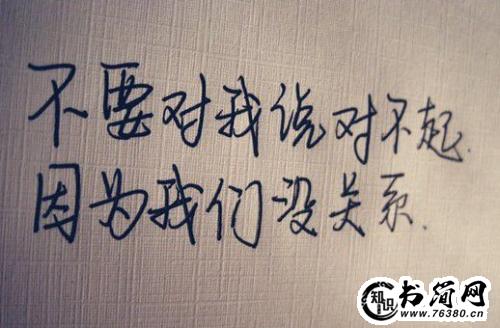 不要对我说对不起.
因为我们没关系.
知识
书简网
www.76380.cn